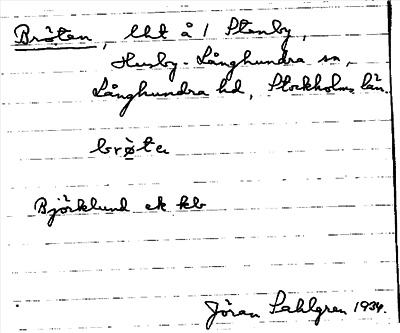 Bråten, lht å 1 Stenby,
Husby-Långhundra sn,
Långhundra hd, Stockholms län.
brö̀ta
Björklund ek kb
Jöran Sahlgren 1934.